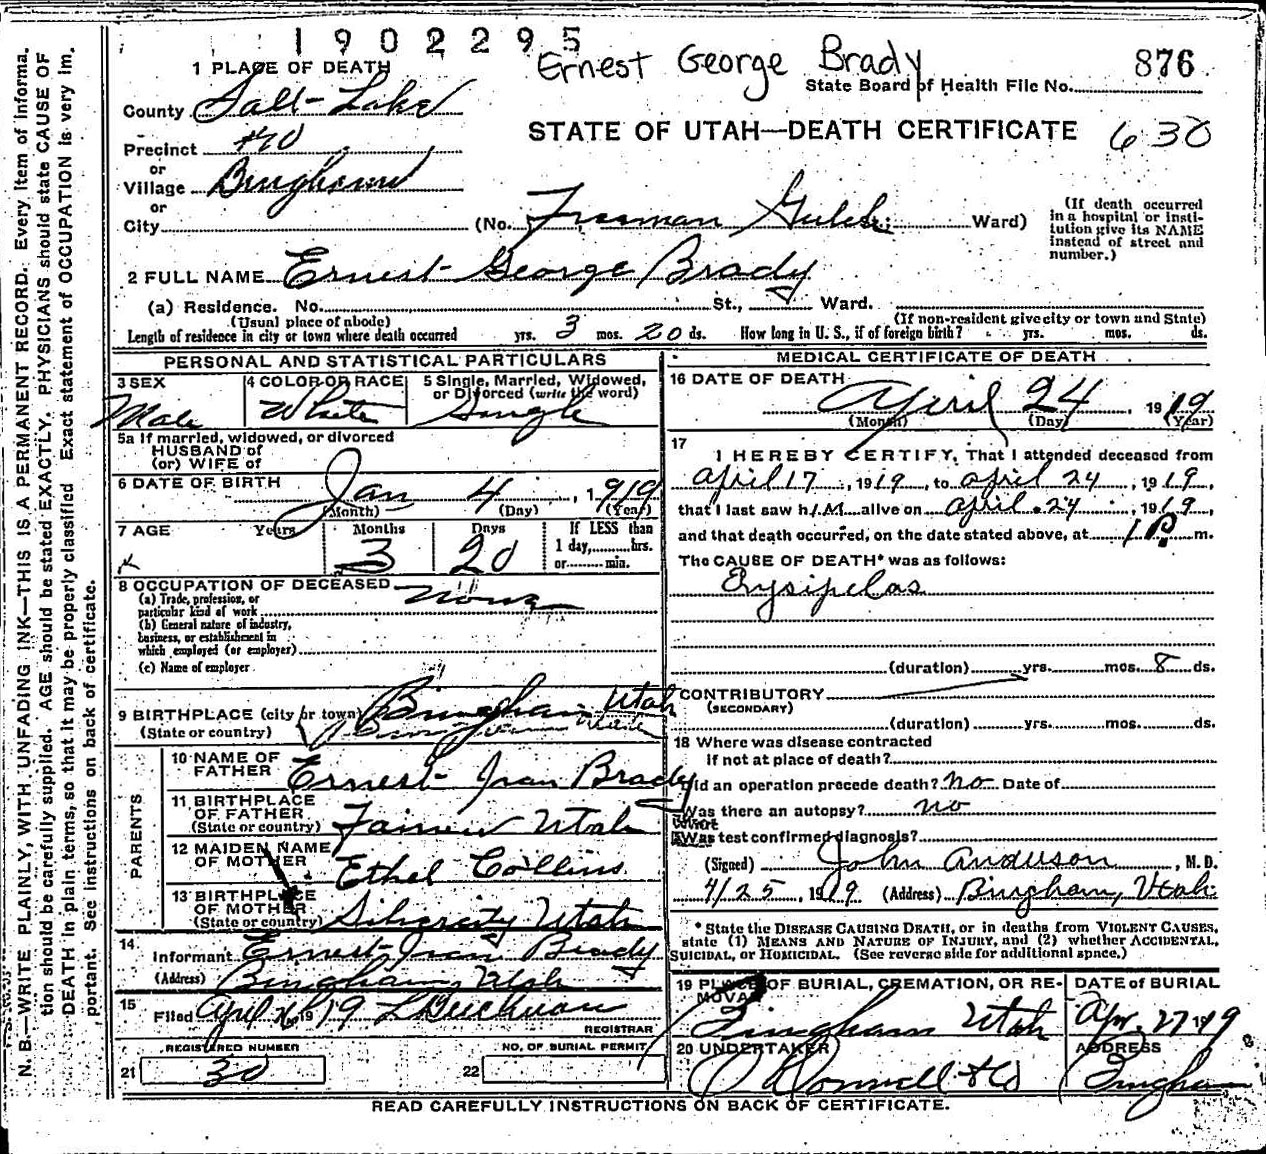 1902295
Ernest George Brady
876
1 PLACE OF DEATH
State Board of Health File No.
County Salt Lake
STATE OF UTAH—DEATH CERTIFICATE 630
Precinct #10
or
Village Bingham
or
City (No. Freeman Gulch Ward)
(If death occurred in a hospital or insti-
tution give its NAME
instead of street and
number.)
2 FULL NAME Ernest George Brady
(a) Residence. No. St., Ward.
(Usual place of abode) (If non-resident give city or town and State)
Length of residence in city or town where death occurred yrs. 3 mos. 20 ds. How long in U. S., if of foreign birth? yrs. mos. ds.
PERSONAL AND STATISTICAL PARTICULARS
3 SEX Male
4 COLOR OR RACE White
5 Single, Married, Widowed,
or Divorced (write the word)
Single
5a If married, widowed, or divorced
HUSBAND of
(or) WIFE of
6 DATE OF BIRTH Jan 4, 1919
(Month) (Day) (Year)
7 AGE Years Months 3 Days 20
If LESS than
1 day, hrs.
or min.
8 OCCUPATION OF DECEASED None
(a) Trade, profession, or
particular kind of work
(b) General nature of industry,
business, or establishment in
which employed (or employer)
(c) Name of employer
9 BIRTHPLACE (city or town) Bingham Utah
(State or country)
PARENTS
10 NAME OF
FATHER Ernest Ivan Brady
11 BIRTHPLACE
OF FATHER
(State or country) Fairview Utah
12 MAIDEN NAME
OF MOTHER Ethel Collins
13 BIRTHPLACE
OF MOTHER
(State or country) Silvercity Utah
14
Informant Ernest Ivan Brady
(Address) Bingham, Utah
15
Filed April 1919
REGISTRAR
REGISTERED NUMBER
21 30
NO. OF BURIAL PERMIT
22
MEDICAL CERTIFICATE OF DEATH
16 DATE OF DEATH
April 24, 1919
(Month) (Day) (Year)
17
I HEREBY CERTIFY, That I attended deceased from
April 17, 1919, to April 24, 1919,
that I last saw him alive on April 24, 1919,
and that death occurred, on the date stated above, at 1 P. m.
The CAUSE OF DEATH* was as follows:
Erysipelas
(duration) yrs. mos. 8 ds.
CONTRIBUTORY
(SECONDARY)
(duration) yrs. mos. ds.
18 Where was disease contracted
If not at place of death?
Did an operation precede death? no Date of
Was there an autopsy? no
Was test confirmed diagnosis?
(Signed) John Anderson, M. D.
4/25, 1919 (Address) Bingham, Utah
* State the DISEASE CAUSING DEATH, or in deaths from VIOLENT CAUSES,
state (1) MEANS AND NATURE OF INJURY, and (2) whether ACCIDENTAL,
SUICIDAL, or HOMICIDAL. (See reverse side for additional space.)
19 PLACE OF BURIAL, CREMATION, OR RE-
MOVAL
Bingham Utah
DATE of BURIAL
Apr. 27 1919
20 UNDERTAKER
O'Donnell & Co
ADDRESS
Bingham
READ CAREFULLY INSTRUCTIONS ON BACK OF CERTIFICATE.
N. B.—WRITE PLAINLY, WITH UNFADING INK—THIS IS A PERMANENT RECORD. Every item of informa-
tion should be carefully supplied. AGE should be stated EXACTLY. PHYSICIANS should state CAUSE OF
DEATH in plain terms, so that it may be properly classified. Exact statement of OCCUPATION is very im-
portant. See instructions on back of certificate.